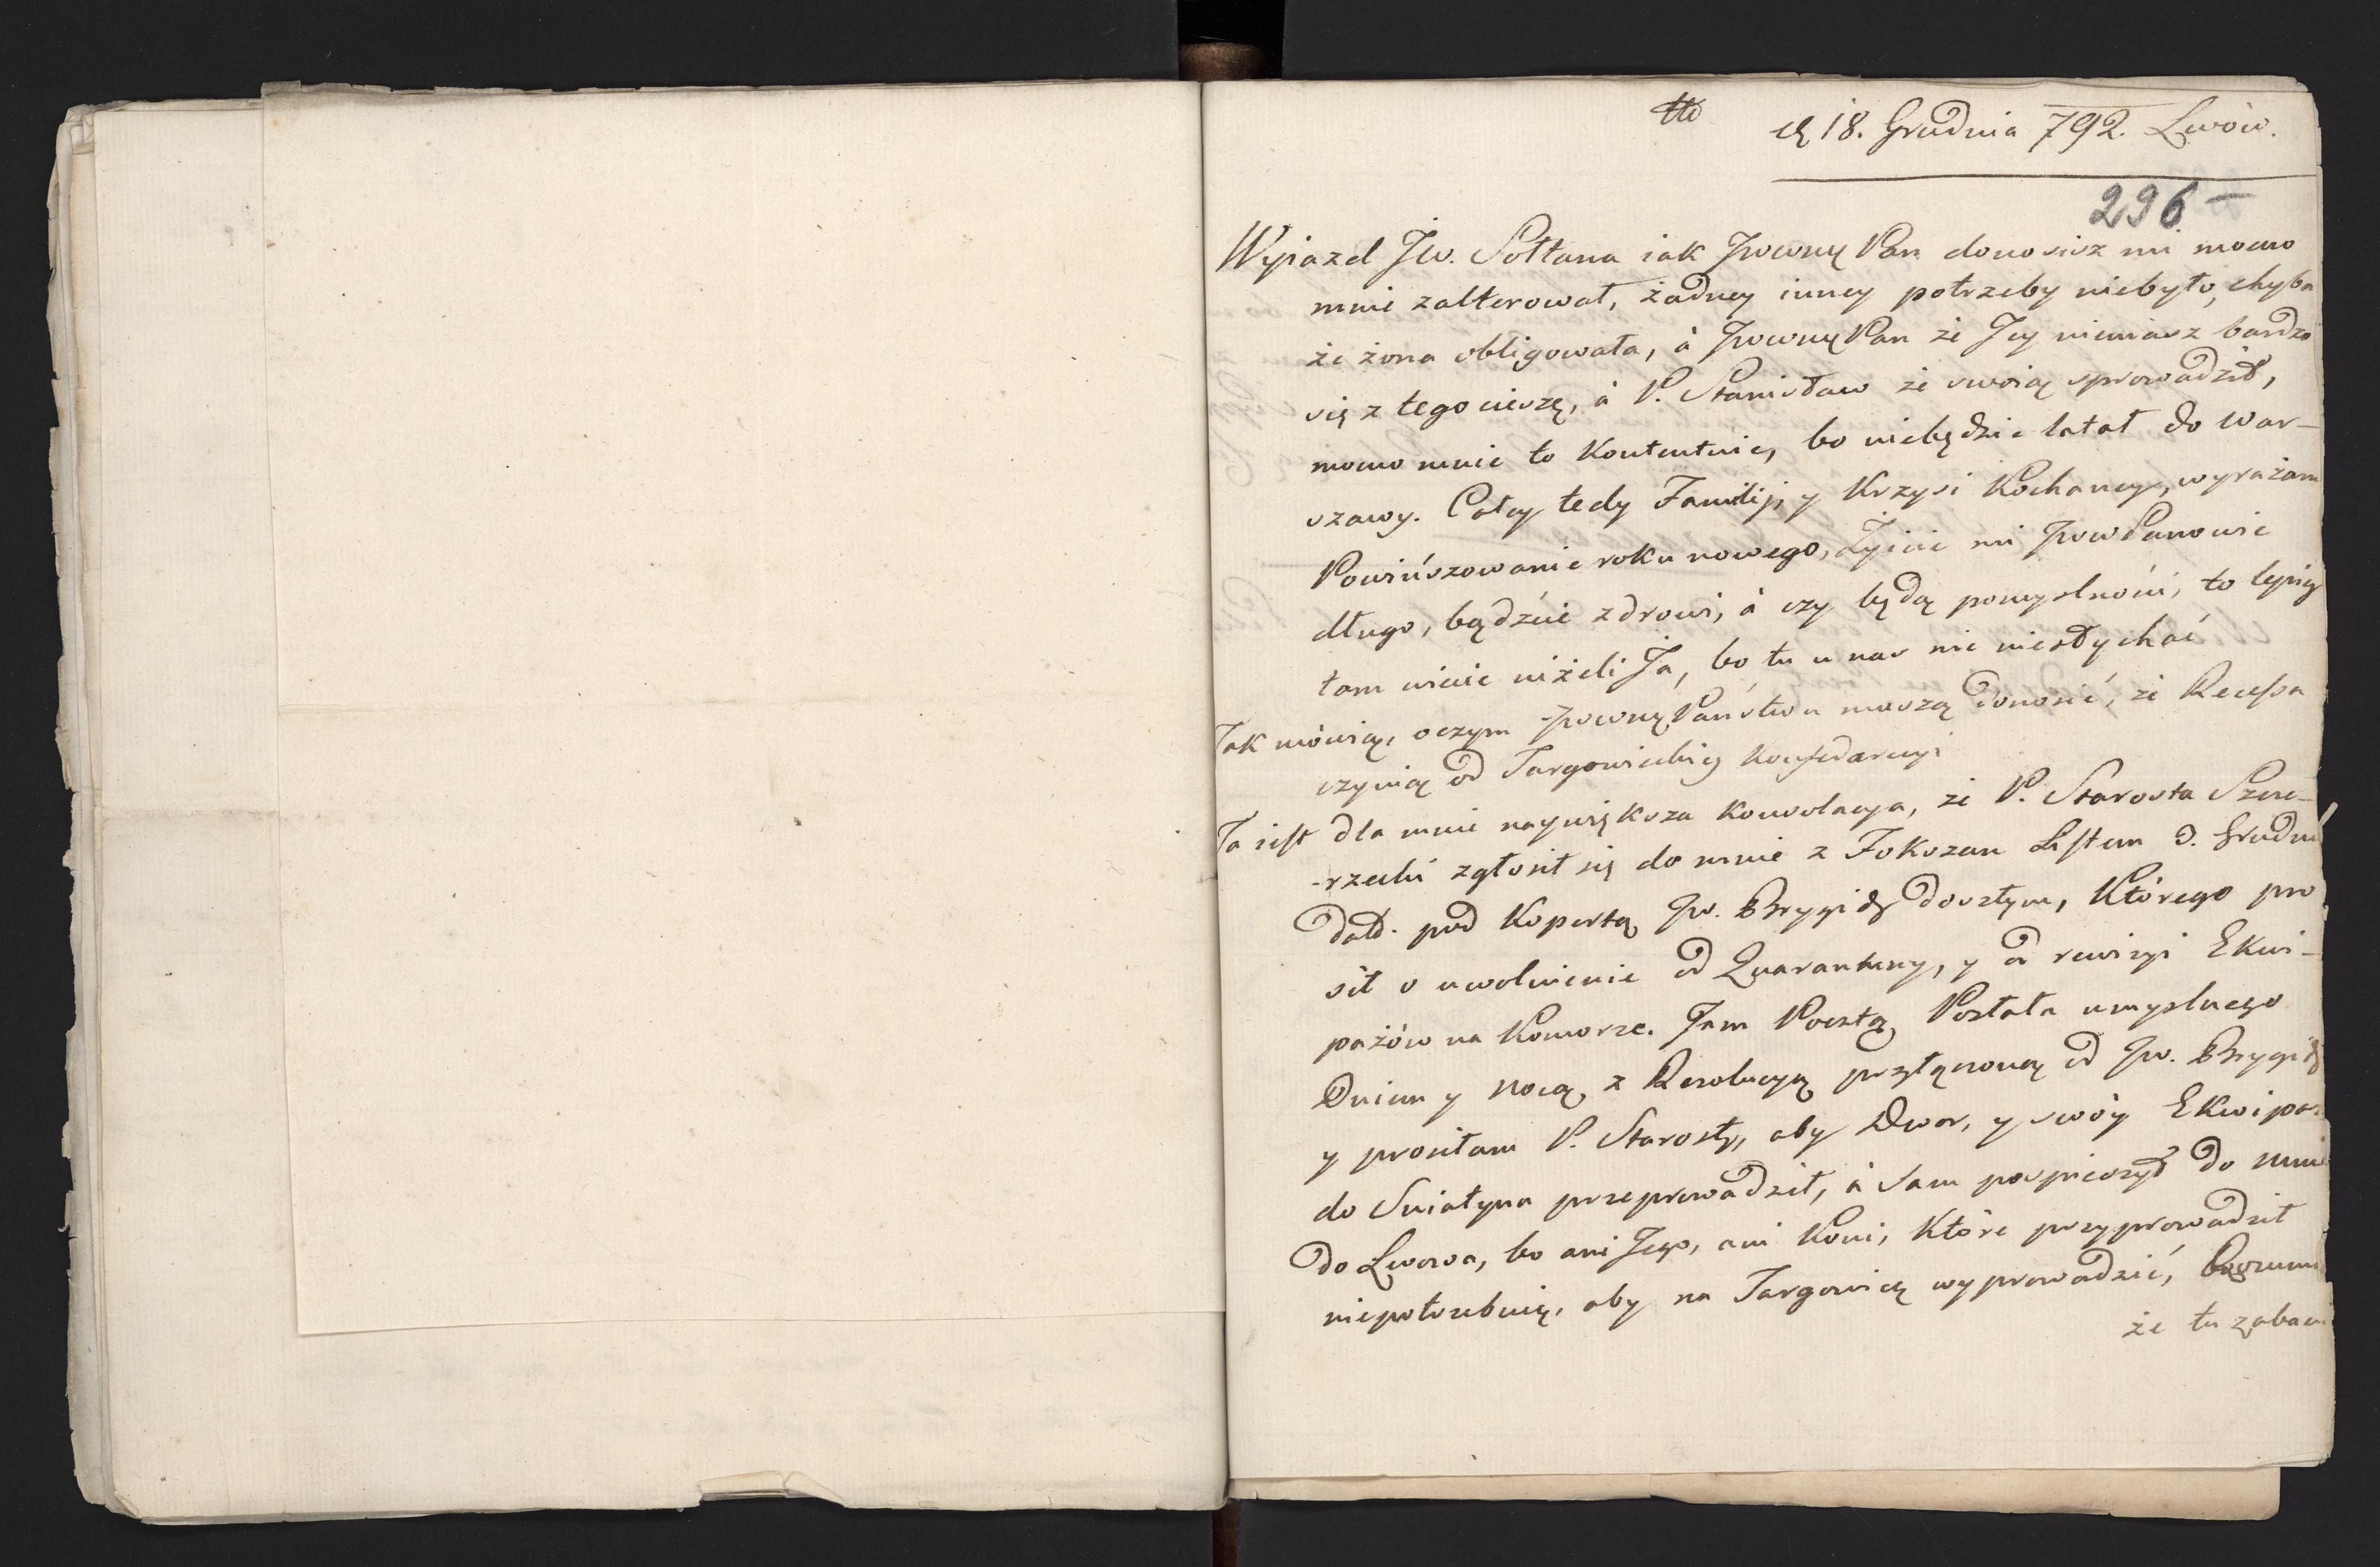 18. Grudnia 792. Lwòw.
296
Wyiazd Jw. Sołtana iak Jwwnę Pan donosisz mi mowo
mnie zalterował, żadney inney potrzeby niebyło, chyba
że żona obligowała, à Jwwnę Pan że Jey niemasz bardzo
się z tego cieszę, à P. Stanisław że swoią sprowadził,
mowo mnie to Kontentuie, bo niebędzie latał do War-
szawy. Całey tedy Familij, y Krzysi Kochaney, wyrażam
Powińszowanie roku nowego, Życie mi JwwPanowie
długo, bądźcie zdrowi, à czy będą pomyslności, to lepiey
tam wiecie niżeli Ja, bo tu u nas nic niesłychać
Jak mòwią, oczym Jwwnę Państwu muszą donosić, że Recessa
czynią od Targowickiey Konfederacyi
Ta iest dla mnie naywiększa Konsolacya, że P. Starosta Szere-
-rzecki zgłosił się do mnie z Fokszan Listem 3. Grudnia
dałd. pod Kopertą Jw. Brygidy doszłym, Którego pro
sił o uwolnienie od Quaranteny, y od rewizyi Ekwi-
pażòw na Komorze. Jam Pocztą Posłała umyslnego
Dniem y Nocą z Rezolucyą przyłączoną od Jw. Brygidy
y prosiłam P. Starosty, aby Dwor, y swòy Ekwipaż
do Sniatyna przeprowadził, à sam pospieszył do mnie
do Lwowa, bo ani Jego, ani Koni, Które przyprowadził
niepotrzebuię, aby na Targowicę wyprowadzić,
że tu zabawi